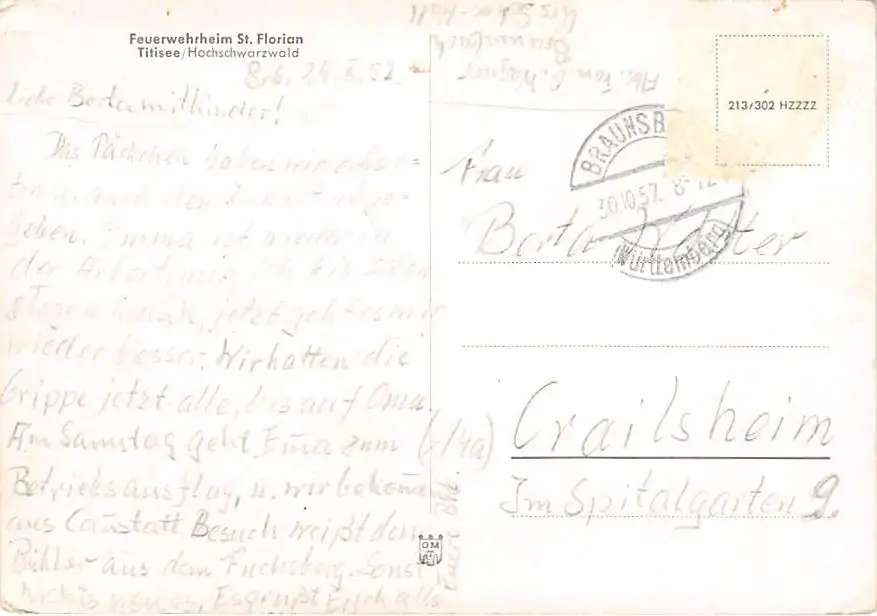 Feuerwehrheim St. Florian
Titisee/Hochschwarzwald
Liebe Berta mit Kinder!
Das Päckchen haben wir erhal=
ten u. auch den Inhalt abge=
geben. Emma ist wieder in
der Arbeit,
8 Tagen krank, jetzt geht es mir
wieder besser. Wir hatten die
Grippe jetzt alle, bis auf Oma.
Am Samstag geht Ema zum
Betriebsausflug, u. wir bekommen
aus Canstatt Besuch weißt den
Bühler aus dem Fuchsberg. Sonst
nichts neues, Es grüßt Euch alle
Eure
Abs. Fam. Wagner
Braunsbach
Krs. Schw.-Hall
213/302 HZZZZ
BRAUNSB
30.10.57. 8-12
(Württemberg)
Frau
Berta
(14a) Crailsheim
Im Spitalgarten 9.
GM